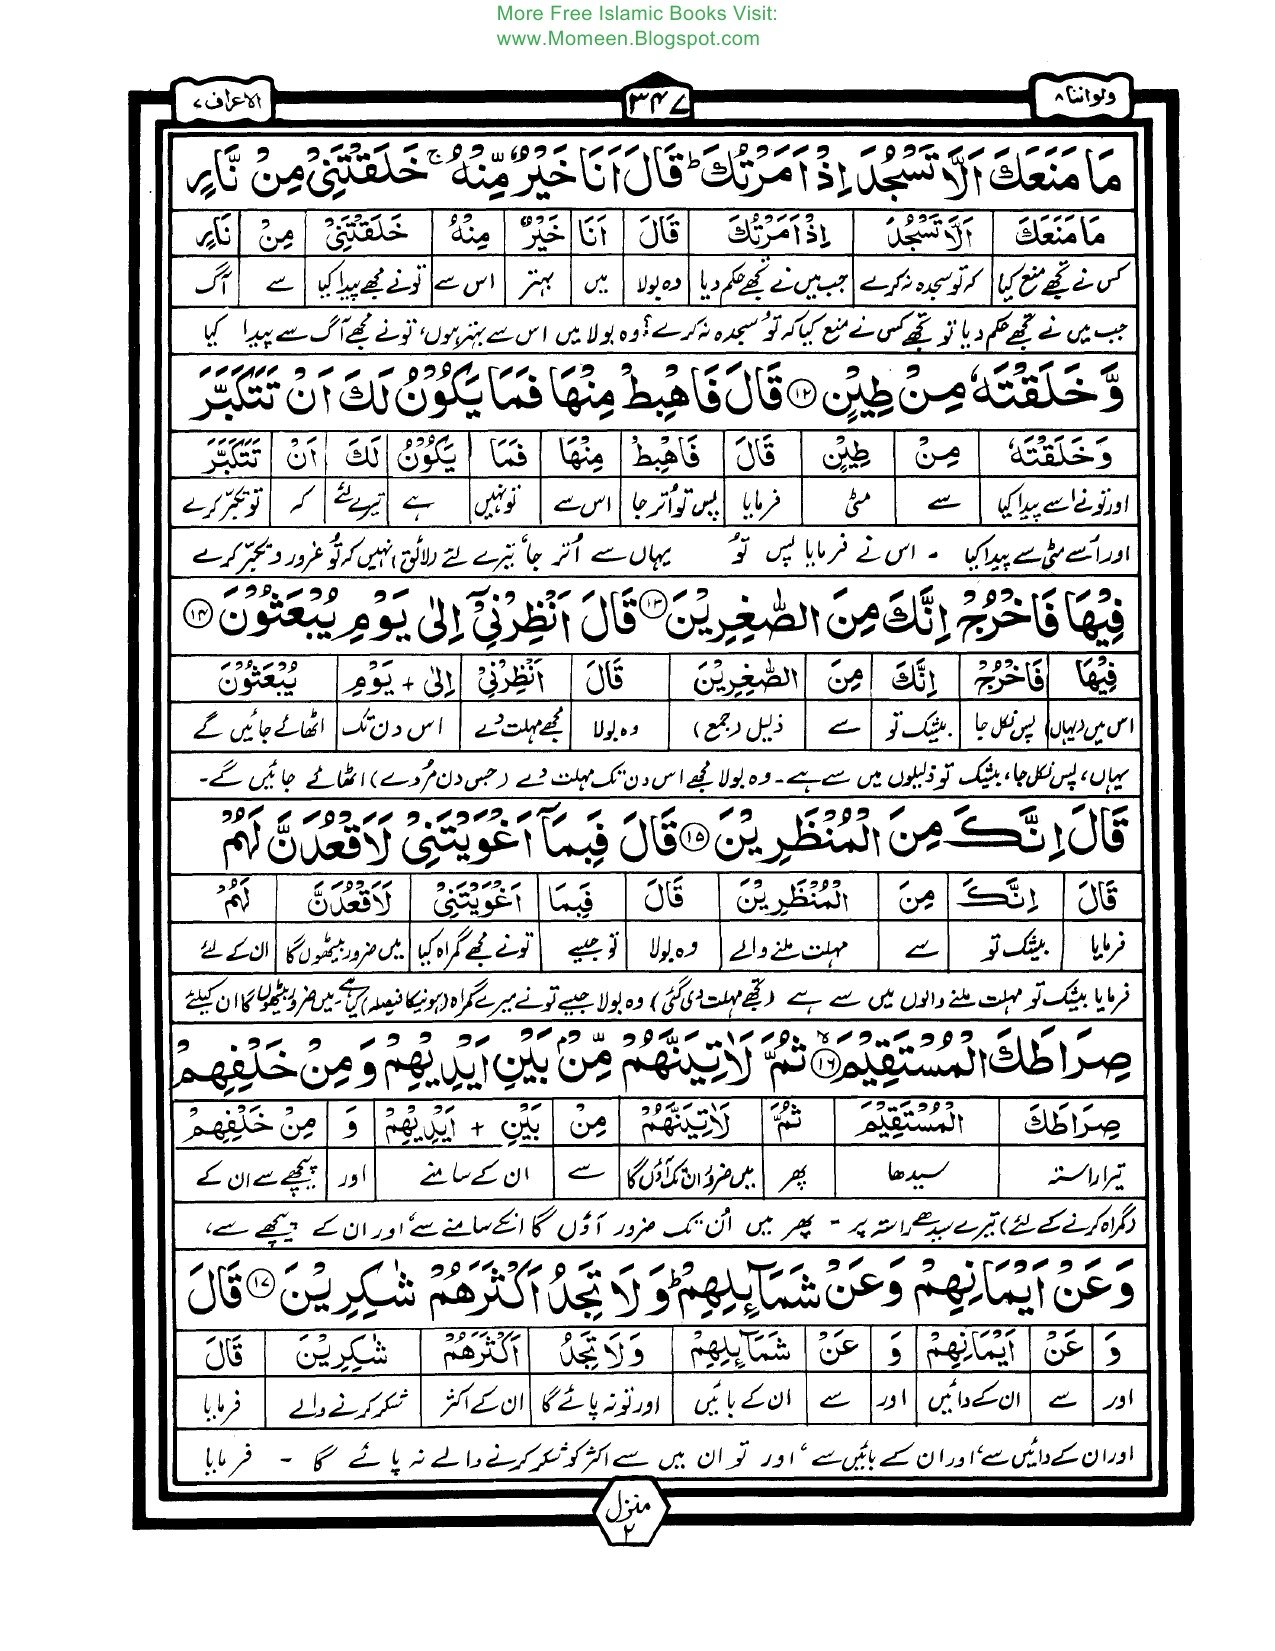 More Free Islamic Books Visit:
www.Momeen.Blogspot.com
ولواننا ۸ ۳۴۷ الاعراف ۷
مَا مَنَعَكَ اَلَّا تَسْجُدَ اِذْ اَمَرْتُكَ ؕ قَالَ اَنَا خَيْرٌ مِّنْهُ ۚ خَلَقْتَنِىْ مِنْ نَّارٍ
مَا مَنَعَكَ اَلَّا تَسْجُدَ اِذْ اَمَرْتُكَ قَالَ اَنَا خَيْرٌ مِنْهُ خَلَقْتَنِىْ مِنْ نَارٍ
کس نے تجھے منع کیا کہ تو سجدہ نہ کرے جب میں نے تجھے حکم دیا وہ بولا میں بہتر اس سے تونے مجھے پیدا کیا سے آگ
جب میں نے تجھے حکم دیا تو تجھے کس نے منع کیا کہ تو سجدہ نہ کرے؟ وہ بولا میں اس سے بہتر ہوں، تونے مجھے آگ سے پیدا کیا
وَّخَلَقْتَهٗ مِنْ طِيْنٍ ۱۲ قَالَ فَاهْبِطْ مِنْهَا فَمَا يَكُوْنُ لَكَ اَنْ تَتَكَبَّرَ
وَخَلَقْتَهٗ مِنْ طِيْنٍ قَالَ فَاهْبِطْ مِنْهَا فَمَا يَكُوْنُ لَكَ اَنْ تَتَكَبَّرَ
اور تونے اسے پیدا کیا سے مٹی فرمایا پس تو اُتر جا اس سے تو نہیں ہے تیرے لئے کہ تو تکبّر کرے
اور اُسے مٹی سے پیدا کیا ۔ اس نے فرمایا پس تُو یہاں سے اُتر جا، تیرے لئے لائق نہیں کہ تُو غرور و تکبّر کرے
فِيْهَا فَاخْرُجْ اِنَّكَ مِنَ الصّٰغِرِيْنَ ۱۳ قَالَ اَنْظِرْنِىْۤ اِلٰى يَوْمِ يُبْعَثُوْنَ ۱۴
فِيْهَا فَاخْرُجْ اِنَّكَ مِنَ الصّٰغِرِيْنَ قَالَ اَنْظِرْنِىْ اِلٰى + يَوْمِ يُبْعَثُوْنَ
اس میں (یہاں) پس نکل جا بیشک تو سے ذلیل (جمع) وہ بولا مجھے مہلت دے اس دن تک اٹھائے جائیں گے
یہاں، پس نکل جا، بیشک تو ذلیلوں میں سے ہے۔ وہ بولا مجھے اس دن تک مہلت دے (جس دن مُردے) اٹھائے جائیں گے۔
قَالَ اِنَّكَ مِنَ الْمُنْظَرِيْنَ ۱۵ قَالَ فَبِمَاۤ اَغْوَيْتَنِىْ لَاَقْعُدَنَّ لَهُمْ
قَالَ اِنَّكَ مِنَ الْمُنْظَرِيْنَ قَالَ فَبِمَا اَغْوَيْتَنِىْ لَاَقْعُدَنَّ لَهُمْ
فرمایا بیشک تو سے مہلت ملنے والے وہ بولا تو جیسے تونے مجھے گمراہ کیا میں ضرور بیٹھوں گا ان کے لئے
فرمایا بیشک تو مہلت ملنے والوں میں سے ہے (تجھے مہلت دی گئی) وہ بولا جیسے تونے میرے گمراہ (ہونیکا فیصلہ) کیا ہے۔ میں ضرور بیٹھوں گا ان کیلئے
صِرَاطَكَ الْمُسْتَقِيْمَ ۱۶ ثُمَّ لَاٰتِيَنَّهُمْ مِّنْۢ بَيْنِ اَيْدِيْهِمْ وَمِنْ خَلْفِهِمْ
صِرَاطَكَ الْمُسْتَقِيْمَ ثُمَّ لَاٰتِيَنَّهُمْ مِنْ بَيْنِ + اَيْدِيْهِمْ وَ مِنْ خَلْفِهِمْ
تیرا راستہ سیدھا پھر میں ضرور ان تک آؤں گا سے ان کے سامنے اور پیچھے سے ان کے
(گمراہ کرنے کے لئے) تیرے سیدھے راستہ پر ۔ پھر میں اُن تک ضرور آؤں گا انکے سامنے سے، اور ان کے پیچھے سے،
وَعَنْ اَيْمَانِهِمْ وَعَنْ شَمَآئِلِهِمْ ؕ وَلَا تَجِدُ اَكْثَرَهُمْ شٰكِرِيْنَ ۱۷ قَالَ
وَ عَنْ اَيْمَانِهِمْ وَ عَنْ شَمَآئِلِهِمْ وَلَا تَجِدُ اَكْثَرَهُمْ شٰكِرِيْنَ قَالَ
اور سے ان کے دائیں اور سے ان کے بائیں اور تو نہ پائے گا ان کے اکثر شکر کرنے والے فرمایا
اور ان کے دائیں سے، اور ان کے بائیں سے، اور تو ان میں سے اکثر کو شکر کرنے والے نہ پائے گا ۔ فرمایا
منزل ۲